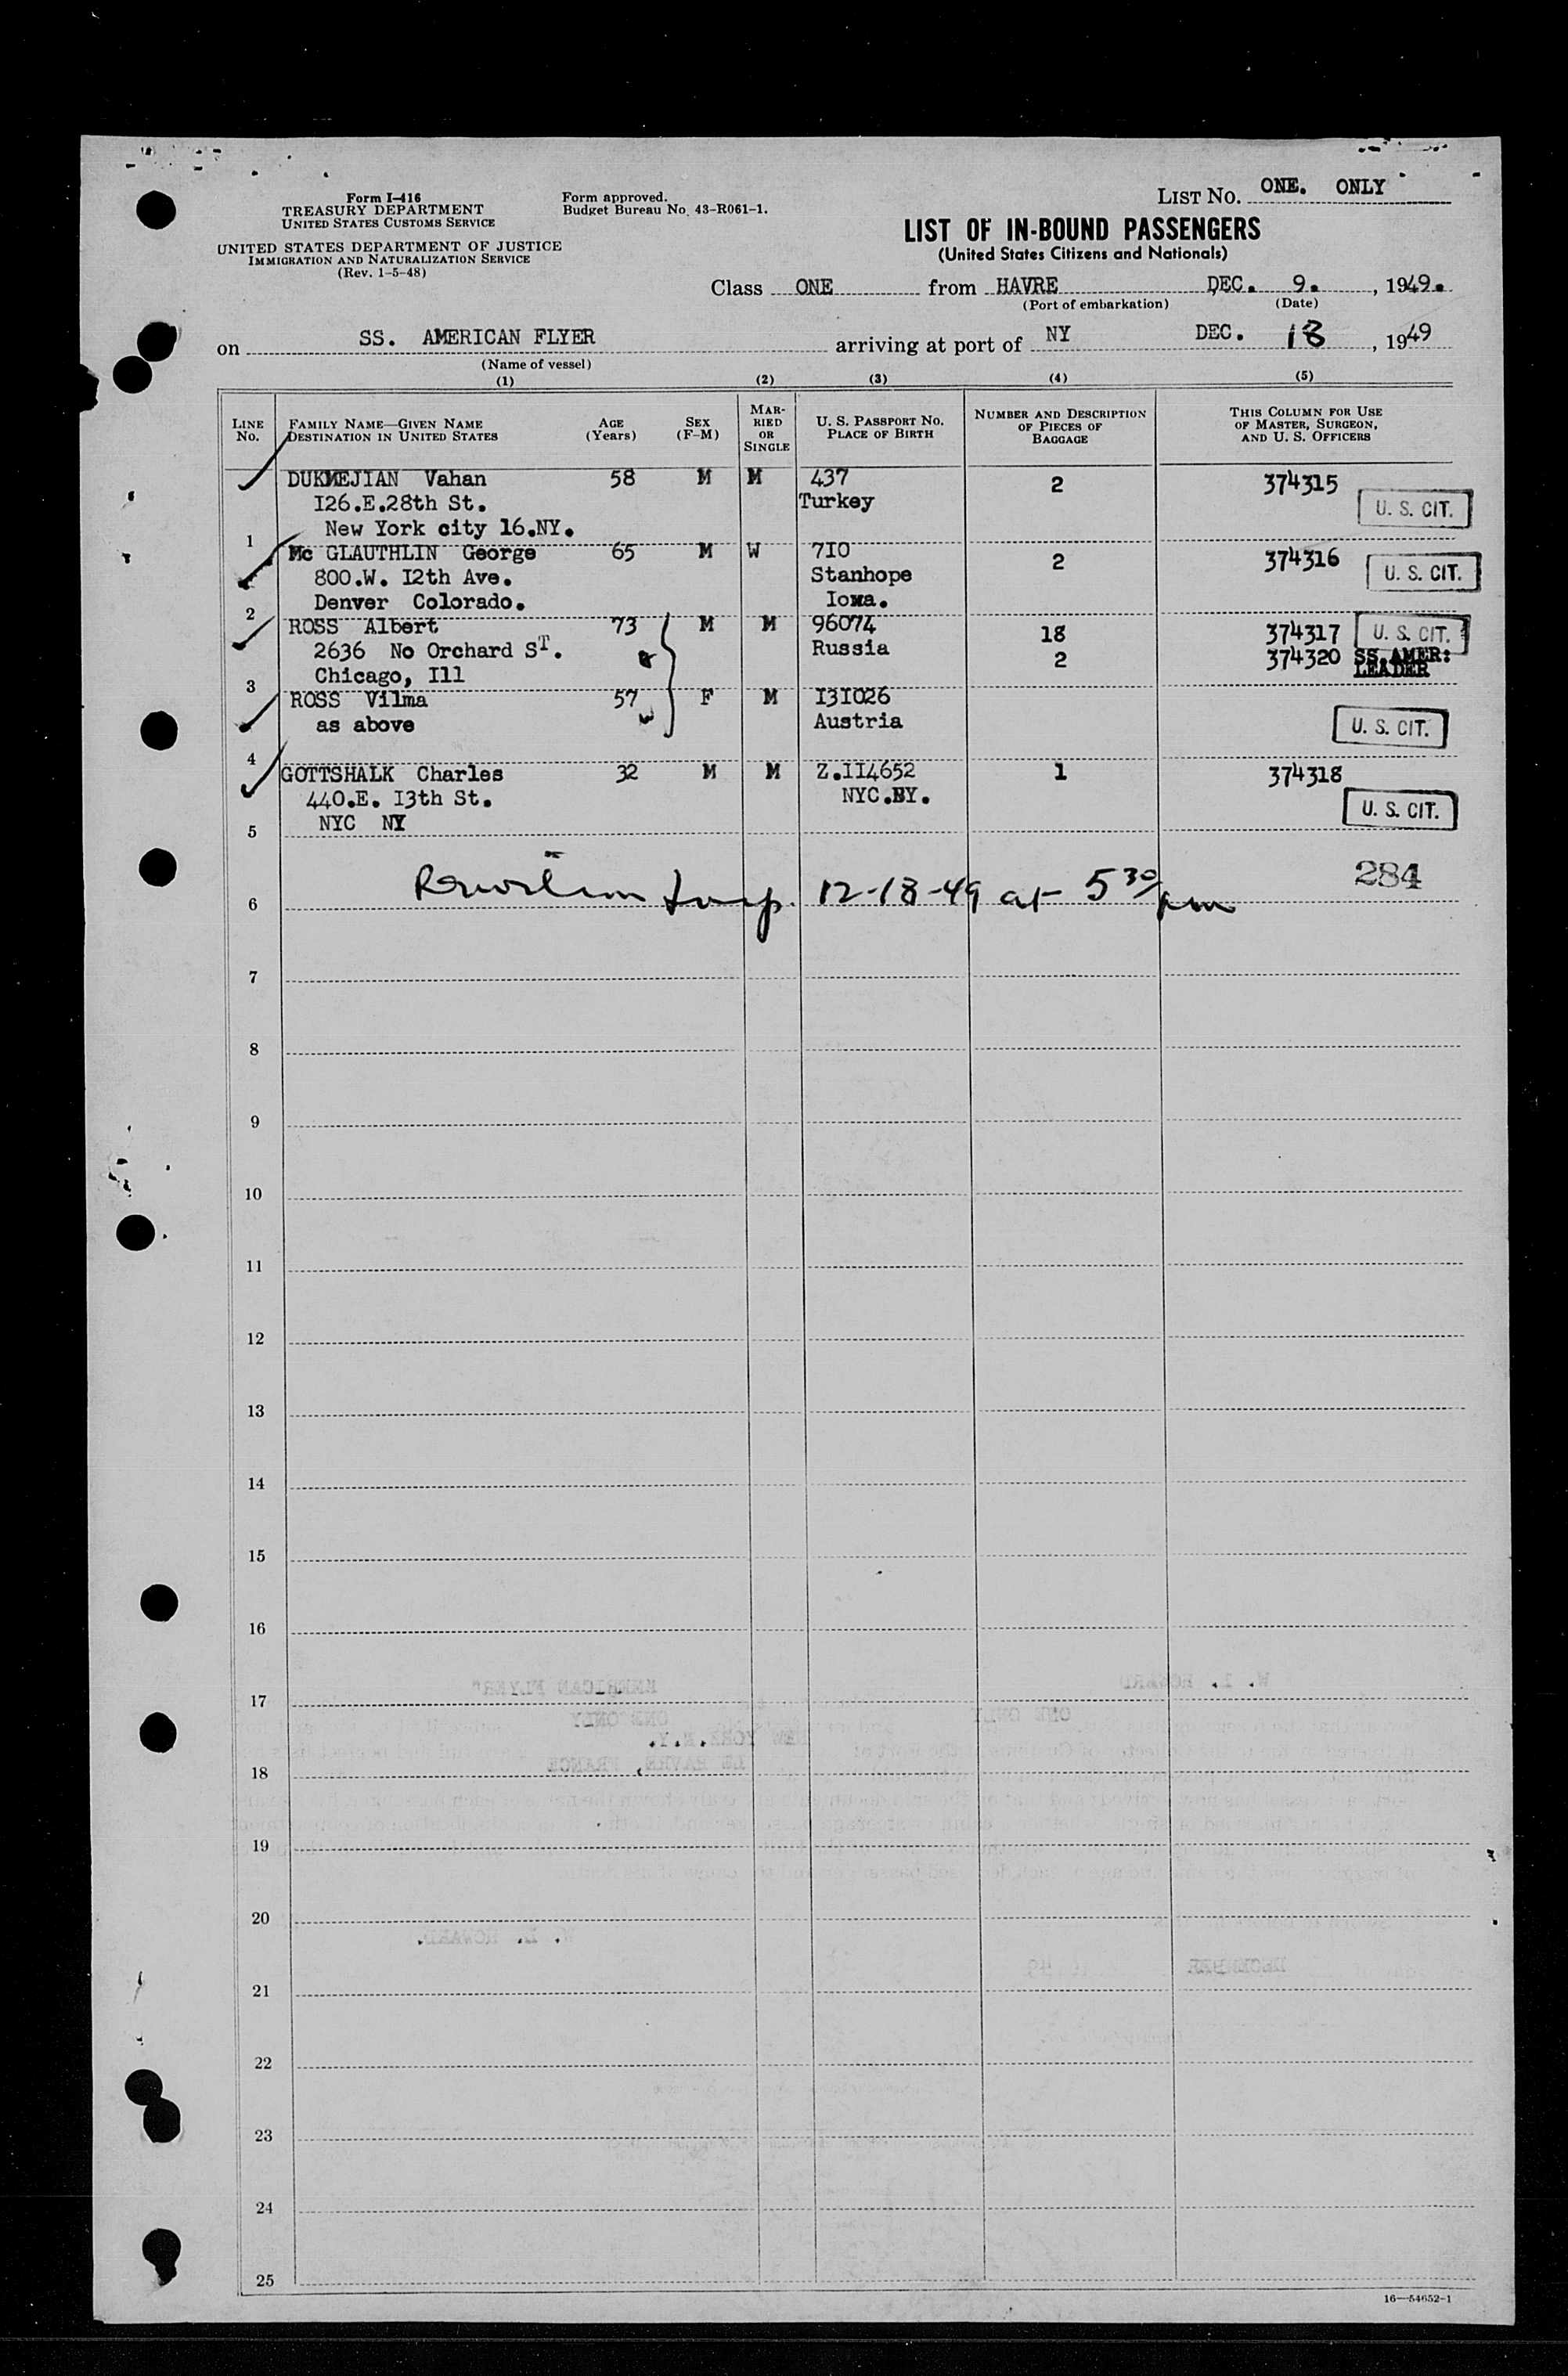 Form I-416
TREASURY DEPARTMENT
UNITED STATES CUSTOMS SERVICE
UNITED STATES DEPARTMENT OF JUSTICE
IMMIGRATION AND NATURALIZATION SERVICE
(Rev. 1-5-48)
Form approved.
Budget Bureau No. 43-R061-1.
LIST No. ONE. ONLY
LIST OF IN-BOUND PASSENGERS
(United States Citizens and Nationals)
Class ONE from HAVRE DEC. 9. , 1949.
(Port of embarkation) (Date)
on SS. AMERICAN FLYER arriving at port of NY DEC. 18 , 1949
(Name of vessel)
(1) (2) (3) (4) (5)
LINE No. FAMILY NAME—GIVEN NAME DESTINATION IN UNITED STATES AGE (Years) SEX (F-M) MARRIED OR SINGLE U. S. PASSPORT NO. PLACE OF BIRTH NUMBER AND DESCRIPTION OF PIECES OF BAGGAGE THIS COLUMN FOR USE OF MASTER, SURGEON, AND U. S. OFFICERS
DUKMEJIAN Vahan 58 M M 437 2 374315
I26.E.28th St. Turkey U. S. CIT.
1 New York city 16.NY.
Mc GLAUTHLIN George 65 M W 7I0 2 374316
800.W. I2th Ave. Stanhope U. S. CIT.
2 Denver Colorado. Iowa.
ROSS Albert 73 M M 96074 18 374317 U. S. CIT.
2636 No Orchard ST. Russia 2 374320 SS.AMER:
3 Chicago, Ill LEADER
ROSS Vilma 57 F M I3I026
as above Austria U. S. CIT.
4
GOTTSHALK Charles 32 M M Z.II4652 1 374318
440.E. I3th St. NYC.NY. U. S. CIT.
5 NYC NY
284
6 Insp. 12-18-49 at 5 30/pm
7
8
9
10
11
12
13
14
15
16
17
18
19
20
21
22
23
24
25
16—54652-1